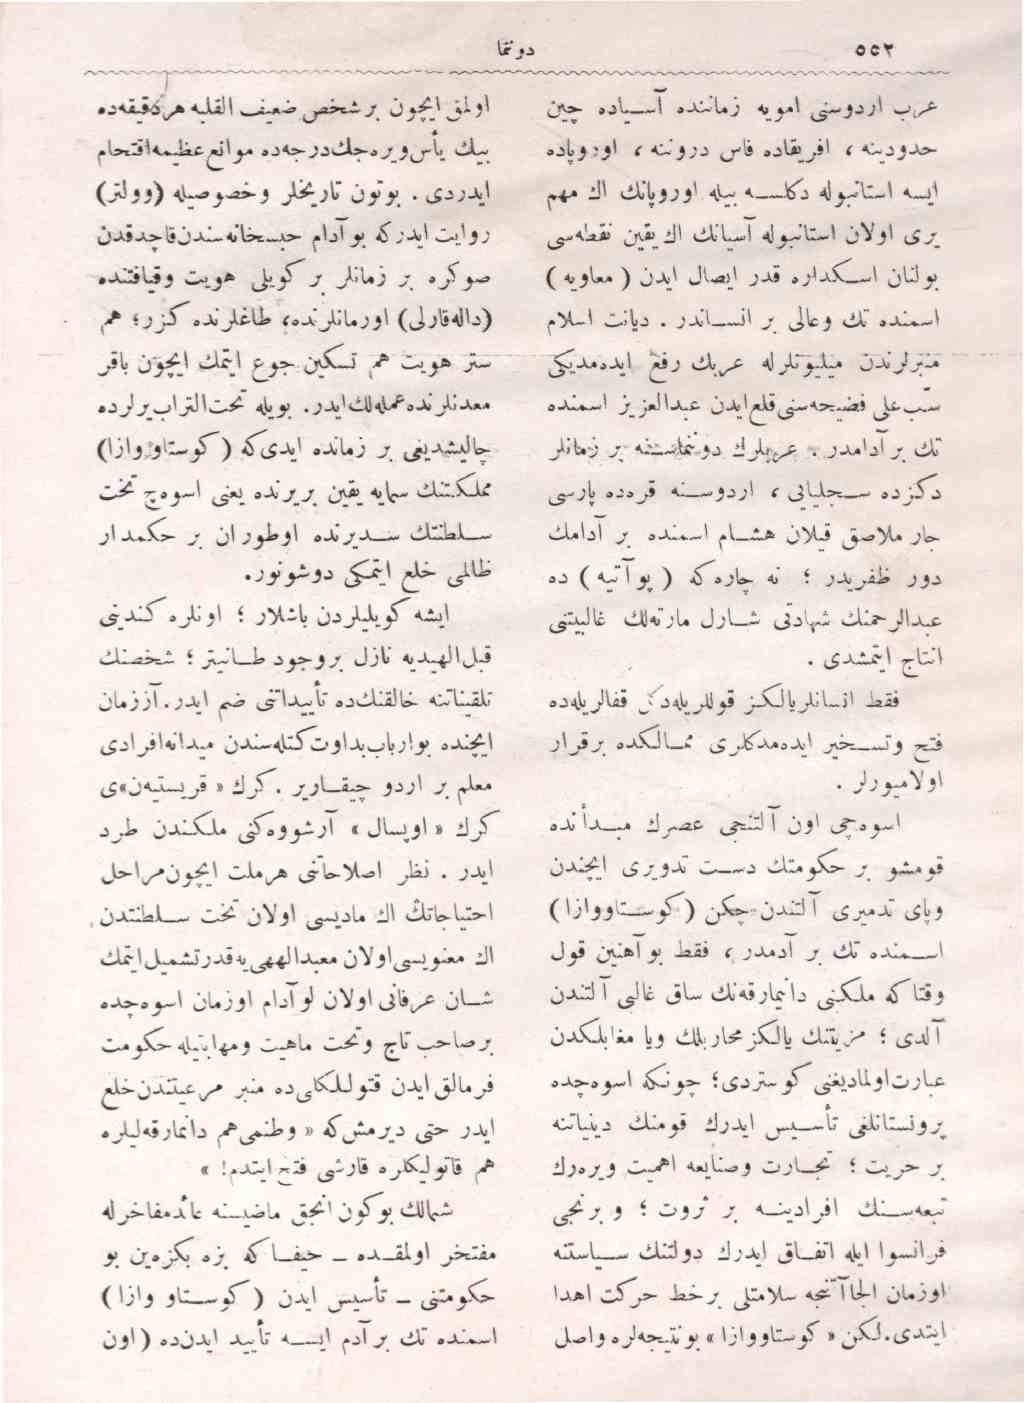 ٥٥٢
دوننما
عرب اردوسنی امویه زماننده آسیاده چین
حدودینه ، افریقاده فاس دروننه ، اوروپاده
ایسه استانبوله دکلسه بیله اوروپانك اك مهم
یری اولان استانبوله آسیانك اك یقین نقطه‌سی
بولنان اسکداره قدر ایصال ایدن ( معاویه )
اسمنده تك وعالی بر انساندر . دیانت اسلام
منبرلرندن میلیونلرله عربك رفع ایده‌مدیکی
سبّ علی فضیحه‌سنی قلع ایدن عبدالعزیز اسمنده
تك بر آدامدر . عربلرك دوننماسنه بر زمانلر
دکزده سجلیایی ، اردوسنه قره‌ده پارسی
جار ملاصق قیلان هشام اسمنده بر آدامك
دور ظفریدر ؛ نه چاره که ( پوآتیه ) ده
عبدالرحمنك شهادتی شارل مارته‌لك غالبیتنی
انتاج ایتمشدی .
فقط انسانلر یالکز قوللریله دکل قفالریله‌ده
فتح وتسخیر ایده‌مدکلری ممالکده برقرار
اولامیورلر .
اسوه‌چی اون آلتنجی عصرك مبدأنده
قومشو بر حکومتك دست تدویری ایچندن
وپای تدمیری آلتندن چکن ( کوستاووازا )
اسمنده تك بر آدمدر ، فقط بو آهنین قول
وقتا که ملکنی دانیمارقه‌نك ساق غالبی آلتندن
آلدی ؛ مزیتنك یالکز محاربلك ویا مغابلکدن
عبارت اولمادیغنی کوستردی ؛ چونکه اسوه‌چده
پروتستانلغی تأسیس ایدرك قومنك دینیاتنه
بر حریت ؛ تجارت وصنایعه اهمیت ویره‌رك
تبعه‌سنك افرادینه بر ثروت ؛ و برنجی
فرانسوا ایله اتفاق ایدرك دولتنك سیاستنه
اوزمان الجاآتنجه سلامتلی برخط حرکت اهدا
ایتدی . لکن « کوستاووازا » بونتیجه‌لره واصل
اولمق ایچون بر شخص ضعیف القلبه هر دقیقه‌ده
بیك یأس ویره‌جك درجه‌ده موانع عظیمه اقتحام
ایدردی . بوتون تاریخلر وخصوصیله (وولتر)
روایت ایدرکه بو آدام حبسخانه‌سندن قاچدقدن
صوکره بر زمانلر بر کویلی هویت وقیافتنده
(داله‌قارلی) اورمانلرنده ، طاغلرنده کزر ؛ هم
ستر هویت هم تسکین جوع ایتمك ایچون باقر
معدنلرنده عمله‌لك ایدر . بویله تحت التراب یرلرده
چالیشدیغی بر زمانده ایدی که ( کوستاووازا)
مملکتنك سمایه یقین بر یرنده یعنی اسوه‌چ تخت
سلطنتك سدیرنده اوطوران بر حکمدار
ظالمی خلع ایتمکی دوشونور .
ایشه کویلیلردن باشلار ؛ اونلره کندینی
قبل الهیدیه نازل بروجود طانیتر ؛ شخصنك
تلقیناتنه خالقنك‌ده تأییداتنی ضم ایدر . آززمان
ایچنده بو ارباب بداوت کتله‌سندن میدانه افرادی
معلم بر اردو چیقاریر . کرك « قریستیه‌ن » ی
کرك « اوپسال » آرشووه‌کنی ملکندن طرد
ایدر . نظر اصلاحاتنی هر ملت ایچون مراحل
احتیاجاتك اك مادیسی اولان تخت سلطنتدن
اك معنویسی اولان معبد الهی‌یه قدر تشمیل ایتمك
شان عرفانی اولان لو آدام اوزمان اسوه‌چده
بر صاحب تاج وتخت ماهیت ومهابتیله حکومت
فرمالق ایدن قتولیکلکی‌ده منبر مرعیتندن خلع
ایدر حتی دیرمش که « وطنمی هم دانمارقه‌لیلره
هم قاتولیکلره قارشی فتح ایتدم ! »
شمالك بو کون انجق ماضیسنه عائد مفاخرله
مفتخر اولمقده ــ حیفا که بزه بکزه‌ین بو
حکومتنی ــ تأسیس ایدن ( کوستاو وازا )
اسمنده تك بر آدم ایسه تأیید ایدن‌ده ( اون